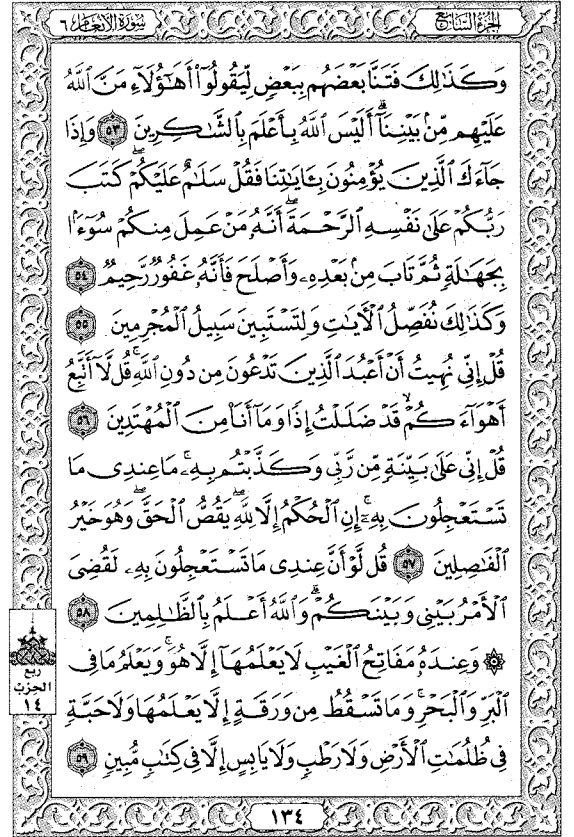 سورة الأنعام ٦
الجزء السابع
وَكَذَٰلِكَ فَتَنَّا بَعْضَهُم بِبَعْضٍ لِّيَقُولُوٓا۟ أَهَـٰٓؤُلَآءِ مَنَّ ٱللَّهُ
عَلَيْهِم مِّنۢ بَيْنِنَآ ۗ أَلَيْسَ ٱللَّهُ بِأَعْلَمَ بِٱلشَّـٰكِرِينَ ٥٣ وَإِذَا
جَآءَكَ ٱلَّذِينَ يُؤْمِنُونَ بِـَٔايَـٰتِنَا فَقُلْ سَلَـٰمٌ عَلَيْكُمْ ۖ كَتَبَ
رَبُّكُمْ عَلَىٰ نَفْسِهِ ٱلرَّحْمَةَ ۖ أَنَّهُۥ مَنْ عَمِلَ مِنكُمْ سُوٓءًۢا
بِجَهَـٰلَةٍ ثُمَّ تَابَ مِنۢ بَعْدِهِۦ وَأَصْلَحَ فَأَنَّهُۥ غَفُورٌ رَّحِيمٌ ٥٤
وَكَذَٰلِكَ نُفَصِّلُ ٱلْـَٔايَـٰتِ وَلِتَسْتَبِينَ سَبِيلُ ٱلْمُجْرِمِينَ ٥٥
قُلْ إِنِّى نُهِيتُ أَنْ أَعْبُدَ ٱلَّذِينَ تَدْعُونَ مِن دُونِ ٱللَّهِ ۚ قُل لَّآ أَتَّبِعُ
أَهْوَآءَكُمْ ۙ قَدْ ضَلَلْتُ إِذًا وَمَآ أَنَا۠ مِنَ ٱلْمُهْتَدِينَ ٥٦
قُلْ إِنِّى عَلَىٰ بَيِّنَةٍ مِّن رَّبِّى وَكَذَّبْتُم بِهِۦ ۚ مَا عِندِى مَا
تَسْتَعْجِلُونَ بِهِۦٓ ۚ إِنِ ٱلْحُكْمُ إِلَّا لِلَّهِ ۖ يَقُصُّ ٱلْحَقَّ ۖ وَهُوَ خَيْرُ
ٱلْفَـٰصِلِينَ ٥٧ قُل لَّوْ أَنَّ عِندِى مَا تَسْتَعْجِلُونَ بِهِۦ لَقُضِىَ
ٱلْأَمْرُ بَيْنِى وَبَيْنَكُمْ ۗ وَٱللَّهُ أَعْلَمُ بِٱلظَّـٰلِمِينَ ٥٨
۞ وَعِندَهُۥ مَفَاتِحُ ٱلْغَيْبِ لَا يَعْلَمُهَآ إِلَّا هُوَ ۚ وَيَعْلَمُ مَا فِى
ٱلْبَرِّ وَٱلْبَحْرِ ۚ وَمَا تَسْقُطُ مِن وَرَقَةٍ إِلَّا يَعْلَمُهَا وَلَا حَبَّةٍ
فِى ظُلُمَـٰتِ ٱلْأَرْضِ وَلَا رَطْبٍ وَلَا يَابِسٍ إِلَّا فِى كِتَـٰبٍ مُّبِينٍ ٥٩
ربع
الحزب
١٤
١٣٤